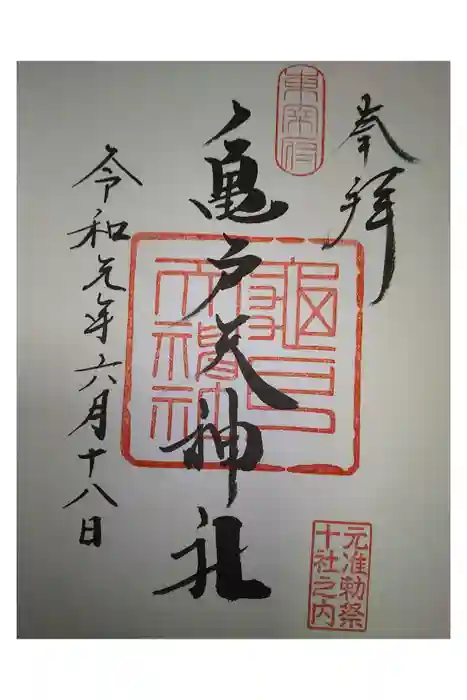 奉拝
東宰府
亀戸天神社
令和元年六月十八日
元准勅祭
十社之内